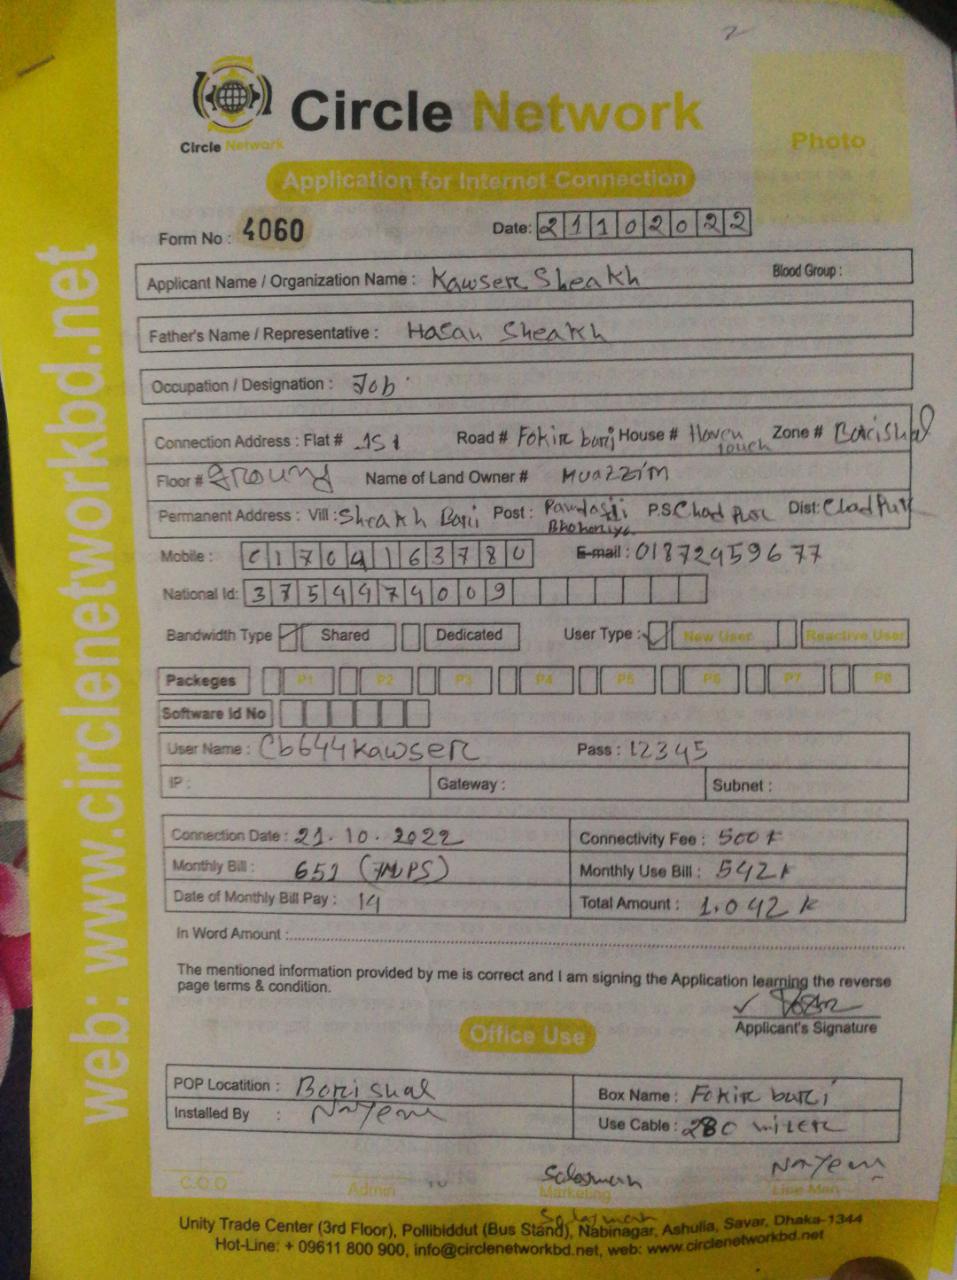 2
Circle Network
Circle Network
Photo
Application for Internet Connection
Form No : 4060 Date: 21102022
Applicant Name / Organization Name : Kawser Sheakh Blood Group :
Father's Name / Representative : Hasan Sheakh
Occupation / Designation : Job
Connection Address : Flat # 1st Road # Fokir bari House # Haven touch Zone # Barishal
Floor # Ground Name of Land Owner # MUAZZIM
Permanent Address : Vill : Sheakh Bari Post : P.S Chad Pur Dist: Chad Pur
Mobile : 01704163780 E-mail : 01872459677
National Id: 3754974009
Bandwidth Type Shared Dedicated User Type : New User Reactive User
Packeges P1 P2 P3 P4 P5 P6 P7 P8
Software Id No
User Name : Cb644kawser Pass : 12345
IP : Gateway : Subnet :
Connection Date : 21.10.2022 Connectivity Fee : 500 k
Monthly Bill : 651 (7MPS) Monthly Use Bill : 542 k
Date of Monthly Bill Pay : 14 Total Amount : 1.042 k
In Word Amount :
The mentioned information provided by me is correct and I am signing the Application learning the reverse
page terms & condition.
Applicant's Signature
Office Use
POP Locatition : Barishal Box Name : Fokir bari
Installed By : Nayem Use Cable : 280 miter
Salesman Nayem
C.O.O Admin Marketing Line Man
Salesman
Unity Trade Center (3rd Floor), Pollibiddut (Bus Stand), Nabinagar, Ashulia, Savar, Dhaka-1344
Hot-Line: + 09611 800 900, info@circlenetworkbd.net, web: www.circlenetworkbd.net
web: www.circlenetworkbd.net